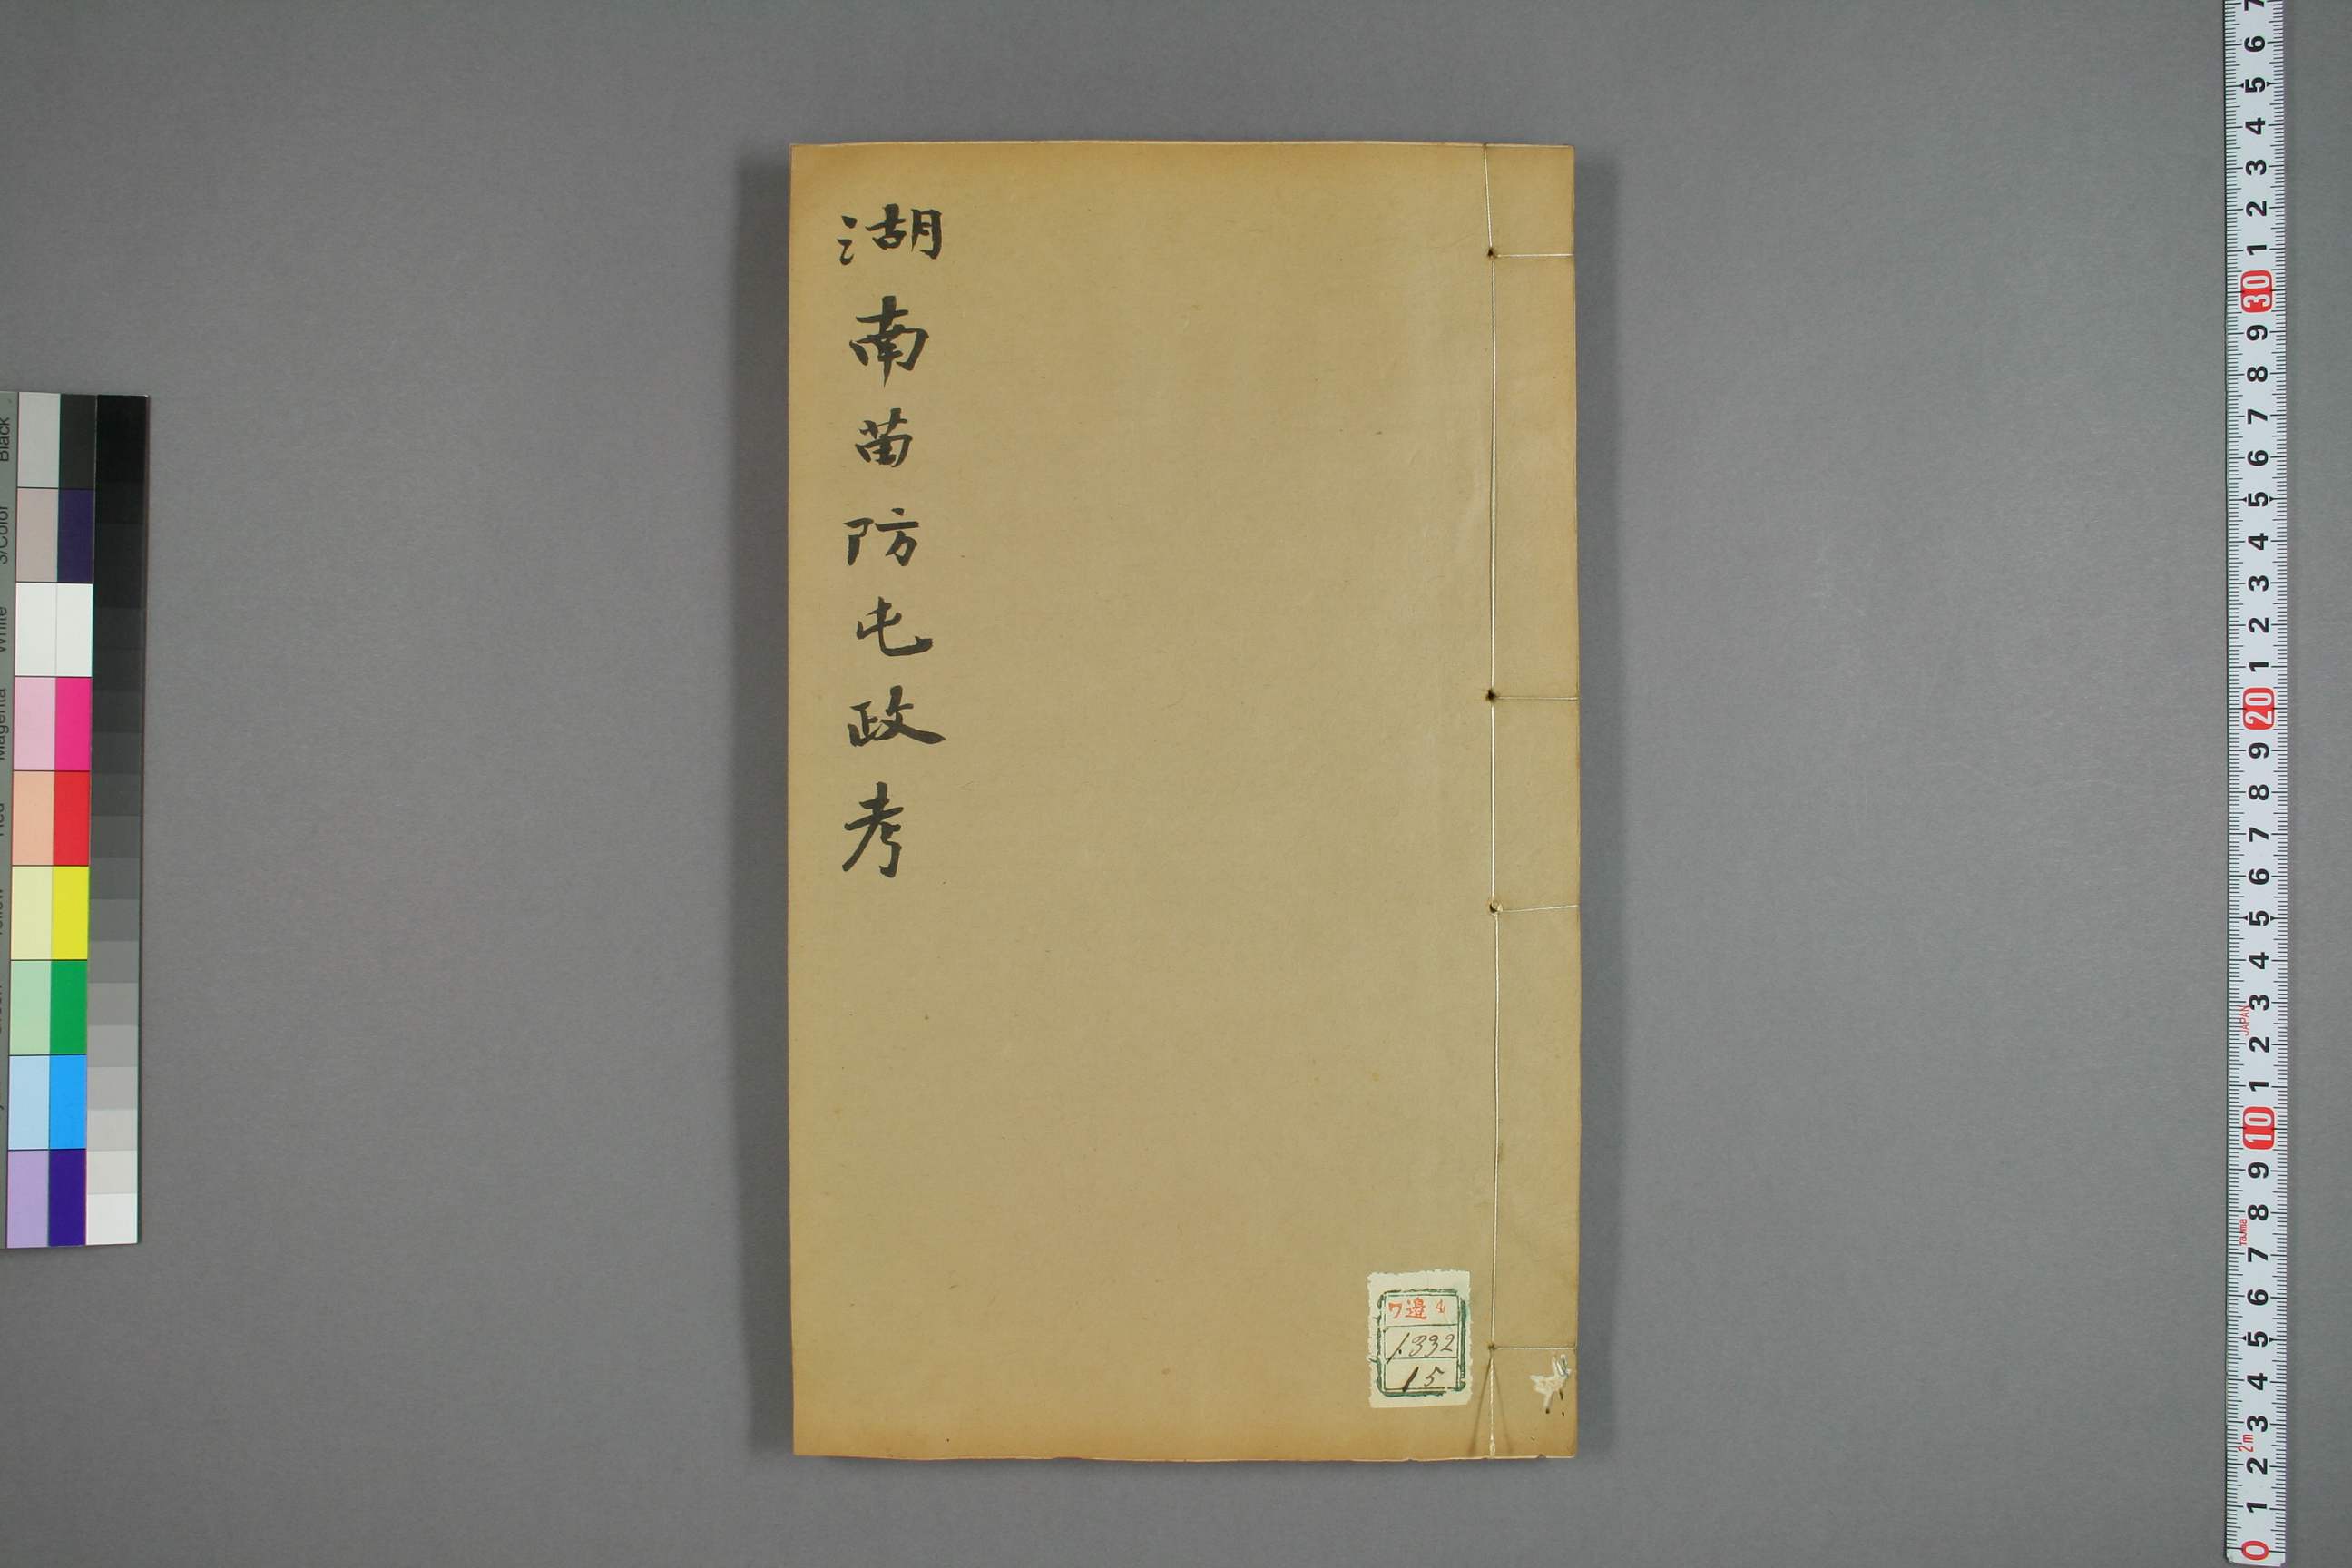 湖南苗防屯政考
ワ邉4
1332
15
Black
3/Color
White
Magenta
7
6
5
4
3
2
1
30
9
8
7
6
5
4
3
2
1
20
9
8
7
6
5
4
3
JAPAN
2
1
10
9
8
Tajima
7
6
5
4
3
2m
2
1
0